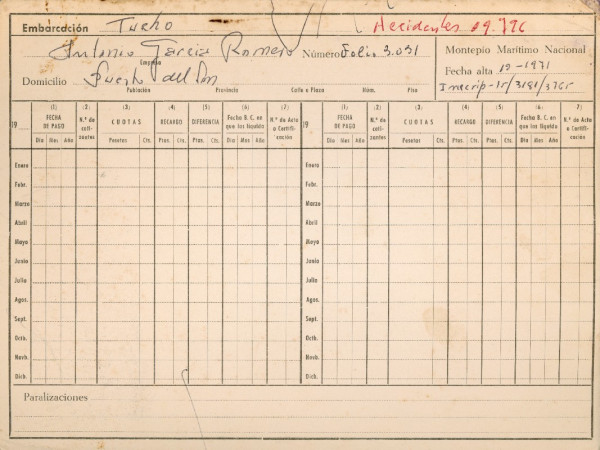 Embarcación Turko Accidentes 19.796
Antonio Garcia Romero Número Folio 3.031 Montepío Marítimo Nacional
Empresa Fecha alta 10-1971
Domicilio Puerto del Son Inscrip-15/3191/3765
Población Provincia Calle o Plaza Núm. Piso
(1) (2) (3) (4) (5) (6) (7) (1) (2) (3) (4) (5) (6) 7)
19 FECHA DE PAGO N.º de coti-zantes CUOTAS RECARGO DIFERENCIA Fecha B. C. en que los liquida N.º de Acta o Certifi-cación 19 FECHA DE PAGO N.º de coti-zantes CUOTAS RECARGO DIFERENCIA Fecha B. C. en que los liquida N.º de Acta o Certifi-cación
Día Mes Año Pesetas Cts. Ptas. Cts. Ptas. Cts. Día Mes Año Día Mes Año Pesetas Cts. Ptas. Cts. Ptas. Cts. Día Mes Año
Enero Enero
Febr. Febr.
Marzo Marzo
Abril Abril
Mayo Mayo
Junio Junio
Julio Julio
Agos. Agos.
Sept. Sept.
Octb. Octb.
Novb. Novb.
Dicb. Dicb.
Paralizaciones